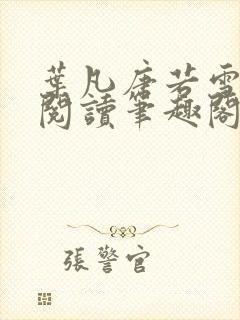 葉凡唐若雪
閱讀筆趣閣
張警官